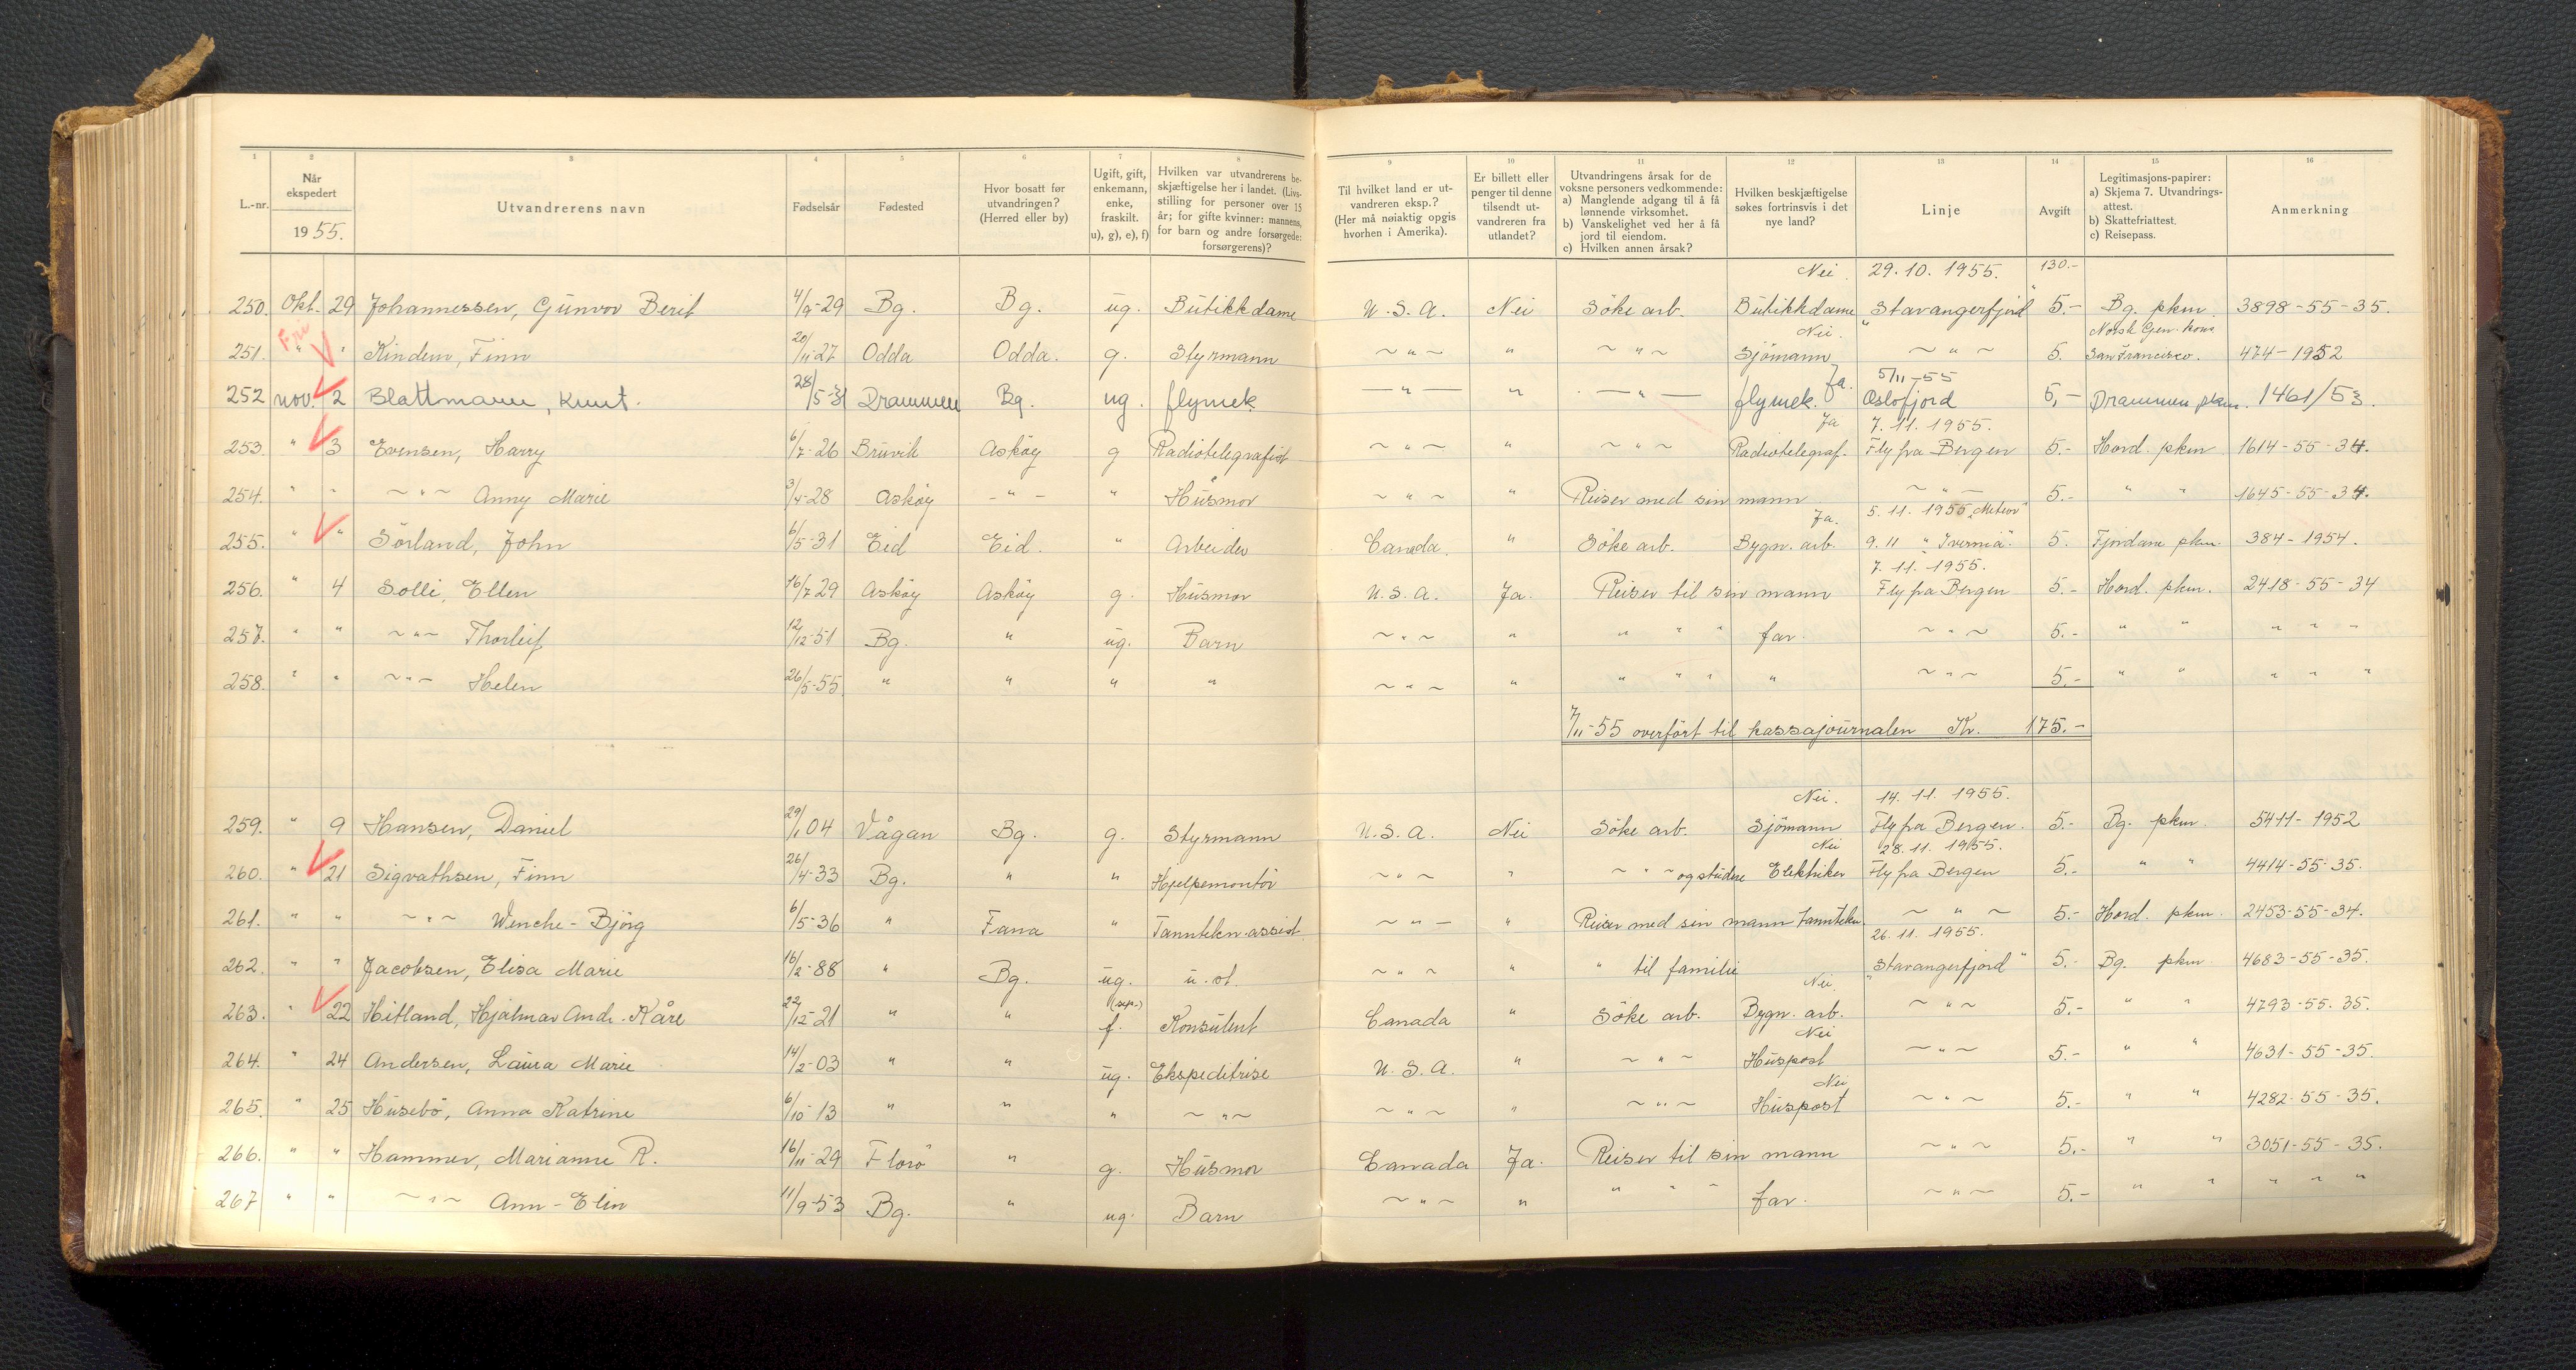 1 2 3 4 5 6 7 8 9 10 11 12 13 14 15 16
L.-nr. | Når ekspedert 1955. | Utvandrerens navn | Fødselsår | Fødested | Hvor bosatt før utvandringen? (Herred eller by) | Ugift, gift, enkemann, enke, fraskilt. u), g), e), f) | Hvilken var utvandrerens beskjæftigelse her i landet. (Livsstilling for personer over 15 år; for gifte kvinner: mannens, for barn og andre forsørgede: forsørgerens)? | Til hvilket land er utvandreren eksp.? (Her må nøiaktig opgis hvorhen i Amerika). | Er billett eller penger til denne tilsendt utvandreren fra utlandet? | Utvandringens årsak for de voksne personers vedkommende: a) Manglende adgang til å få lønnende virksomhet. b) Vanskelighet ved her å få jord til eiendom. c) Hvilken annen årsak? | Hvilken beskjæftigelse søkes fortrinsvis i det nye land? | Linje | Avgift | Legitimasjons-papirer: a) Skjema 7. Utvandringsattest. b) Skattefriattest. c) Reisepass. | Anmerkning
Nei. 29.10.1955. 130.-
250. Okt. 29 Johannessen, Gunvor Berit 4/9-29 Bg. Bg. ug. Butikkdame U.S.A. Nei Söke arb. Butikkdame "Stavangerfjord" 5.- Bg. pkm. 3898-55-35.
Fri Nei. Norsk Gen. kons.
251. " " Kindem, Finn 20/11-27 Odda Odda. g. Styrmann ~"~ " ~"~ Sjömann ~"~ 5. San Francisco. 474-1952
Ja. 5/11-55
252 nov. 2 Blattmann, Knut. 28/5-31 Drammen Bg. ug. flymek. —"— " —"— flymek. Oslofjord 5,- Drammen pkm. 1461/53.
Ja 7.11.1955.
253. " 3 Evensen, Harry 6/7-26 Bruvik Asköy g Radiotelegrafist ~"~ " ~"~ Radiotelegraf. Fly fra Bergen 5.- Hord. pkm. 1614-55-34.
254. " " ~"~ Anny Marie 3/4-28 Asköy -"- " Husmor ~"~ " Reiser med sin mann ~"~ 5.- " " 1645-55-34.
Ja. 5.11.1955 "Meteor"
255. " " Sörland, John 6/5-31 Eid Eid. " Arbeider Canada. " Söke arb. Bygn. arb. 9.11 "Ivernia". 5. Fjordane pkm. 384-1954.
7.11.1955.
256. " 4 Solli, Ellen 16/7 29 Asköy Asköy g. Husmor U.S.A. Ja. Reiser til sin mann Fly fra Bergen 5.- Hord. pkm. 2418-55-34
257. " " ~"~ Thorleif 12/12-51 Bg. " ug. Barn ~"~ " " " " far. ~"~ 5.- " " " " "
258. " " ~"~ Helen 26/5-55 " " " " ~"~ " " " " " ~"~ 5.- " " " " "
7/11-55 overført til kassajournalen Kr. 175.-
Nei. 14.11.1955.
259. " 9 Hansen, Daniel 29/1 04 Vågan Bg. g. Styrmann U.S.A. Nei Söke arb. Sjömann Fly fra Bergen. 5.- Bg. pkm. 5411-1952
Nei 28.11.1955.
260. " 21 Sigvathsen, Finn 26/4-33 Bg. " " Hjelpemontör ~"~ " ~"~ og studere Elektriker Fly fra Bergen 5.- " " 4414-55-35.
261. " " ~"~ Wenche-Björg 6/5-36 " Fana " Tanntekn. assist. ~"~ " Reiser med sin mann Tanntekn. ~"~ 5.- Hord. pkm. 2453-55-34.
26.11.1955.
262. " " Jacobsen, Elisa Marie 16/2-88 " Bg. ug. u. st. ~"~ " " til familie "Stavangerfjord" 5.- Bg. pkm. 4683-55-35.
(sep.) Nei.
263. " 22 Hitland, Hjalmar Andr. Kåre 22/12-21 " " f. Konsulent Canada " Söke arb. Bygn. arb. ~"~ 5.- " " 4793-55-35.
Nei
264. " 24 Andersen, Laura Marie 14/2-03 " " ug. Ekspeditrise U.S.A. " ~"~ Huspost ~"~ 5.- " " 4631-55-35.
Nei
265. " 25 Husebö, Anna Katrine 6/10-13 " " " ~"~ ~"~ " ~"~ Huspost ~"~ 5.- " " 4282-55-35.
266. " " Hammer, Marianne R. 16/11-29 Florö " g. Husmor Canada Ja. Reiser til sin mann ~"~ 5.- " " 3051-55-35.
267 " " ~"~ Ann-Elin 11/9-53 Bg. " ug. Barn ~"~ " " " " far. ~"~ 5.- " " " " "